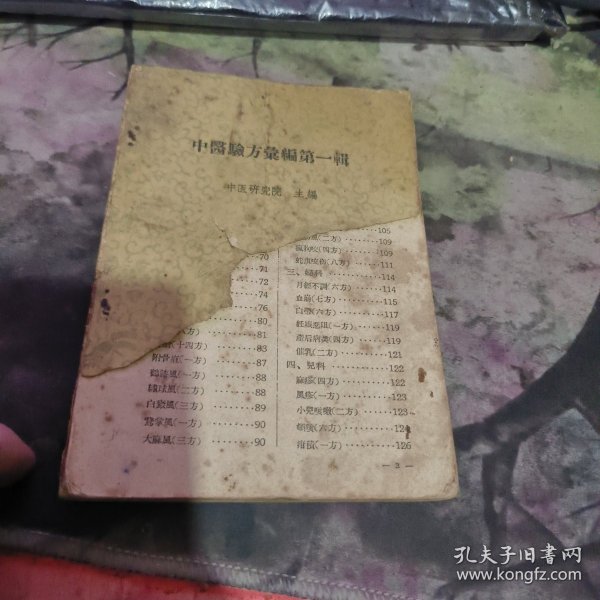 中醫驗方彙編第一輯
中医研究院 主編
70
71
72
74
76
80
方)·········81
(十四方)·········83
附骨疽(一方)·········87
鶴膝風(一方)·········88
繡球風(二方)·········88
白癜風(三方)·········89
鵞掌風(一方)·········90
大麻風(三方)·········90
105
風(二方)·········109
瘋狗咬(四方)·········109
蛇虫咬伤(八方)·········111
三、婦科·········114
月經不調(六方)·········114
血崩(七方)·········115
白帶(六方)·········117
妊娠惡阻(一方)·········119
產后病类(四方)·········119
催乳(二方)·········121
四、兒科·········122
麻疹(四方)·········122
風疹(一方)·········123
小兒咳嗽(二方)·········123
(六方)·········124
疳積(一方)·········126
— 3 —
孔夫子旧书网
www.kongfz.com